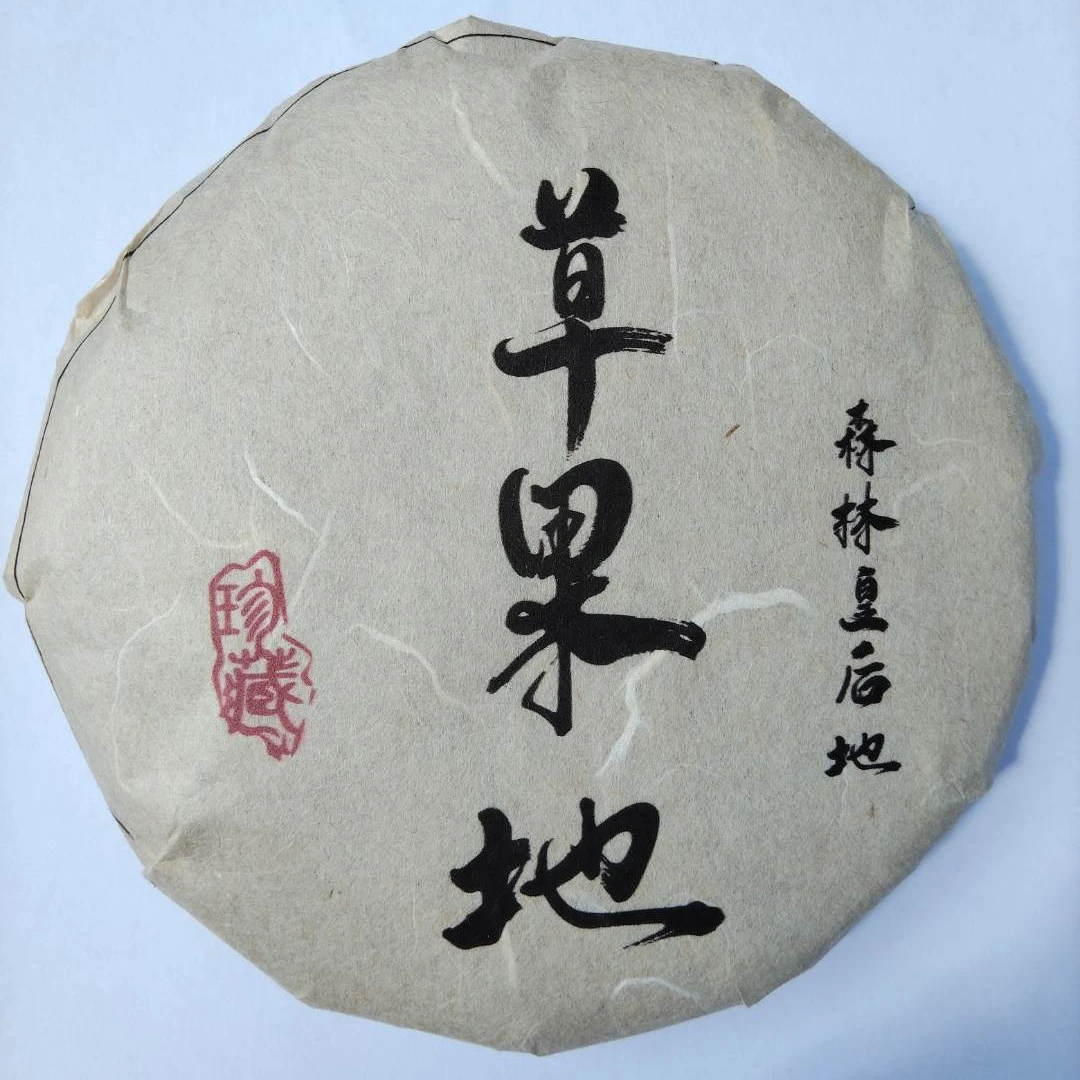 森林皇后地
草果地
珍藏